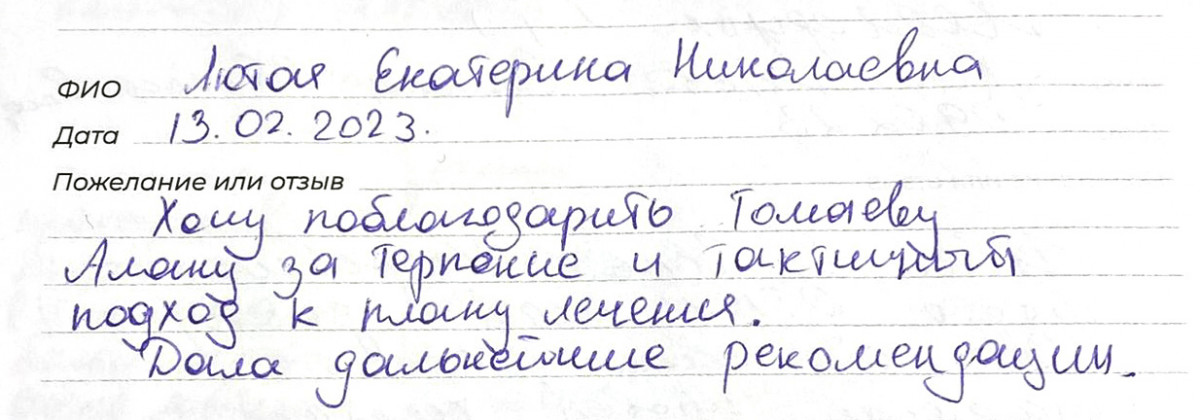 ФИО Лютая Екатерина Николаевна
Дата 13.02.2023.
Пожелание или отзыв
Хочу поблагодарить Томаеву
Алану за терпение и тактичный
подход к плану лечения.
Дала дальнейшие рекомендации.